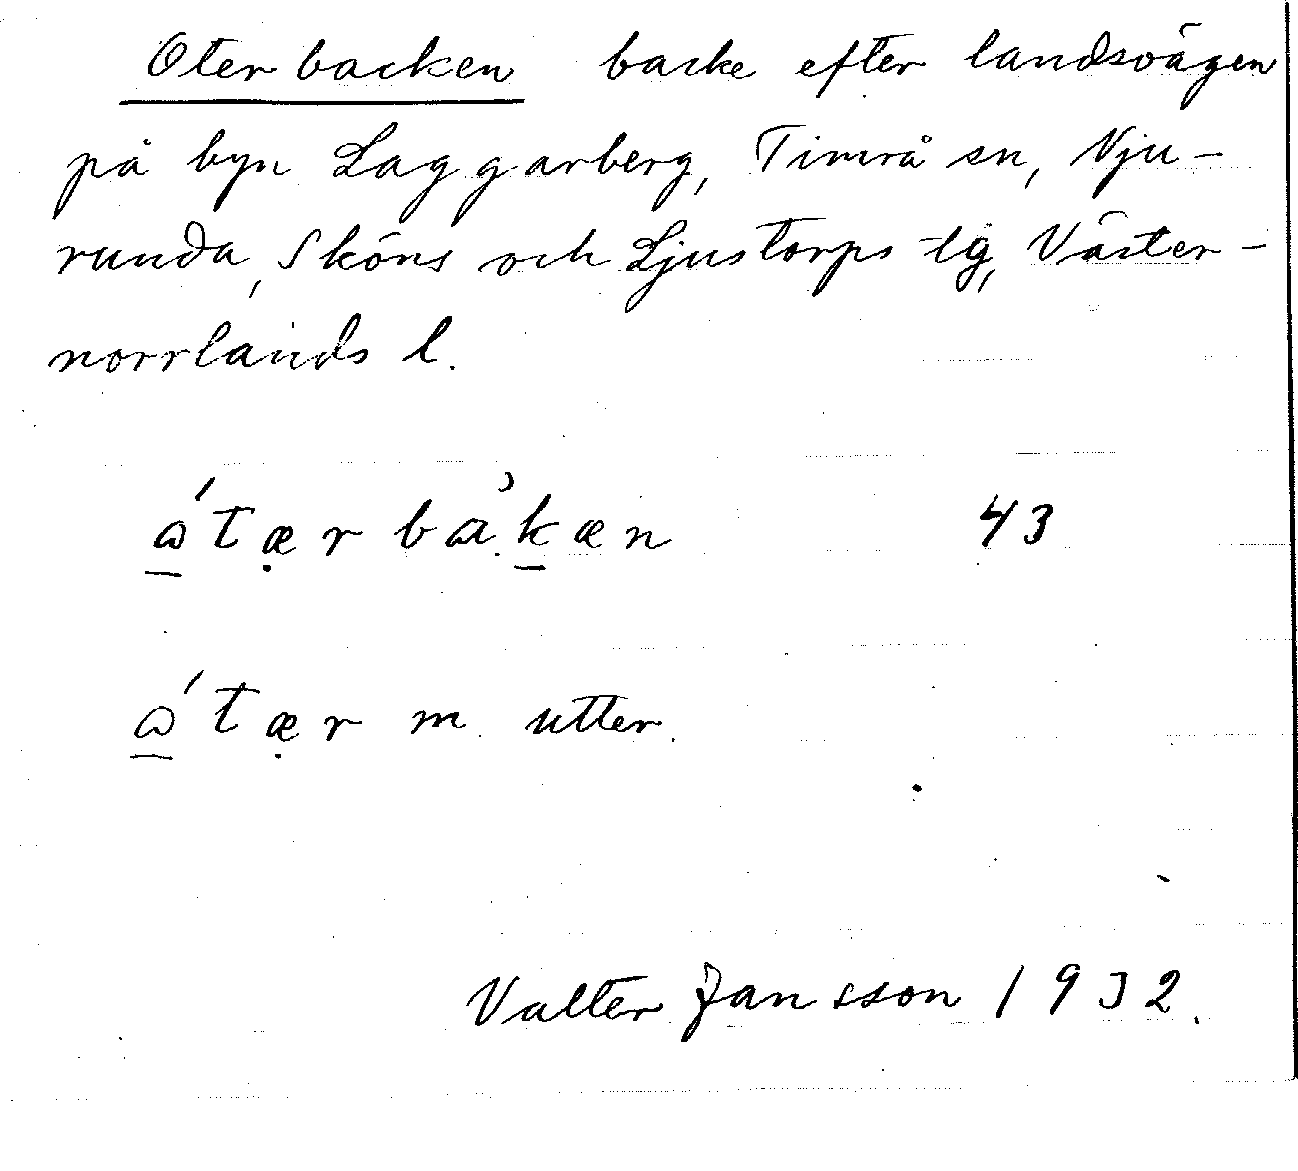 Oterbacken backe efter landsvägen
på byn Laggarberg, Timrå sn, Nju-
runda, Sköns och Ljustorps tg, Väster-
norrlands l.
ɷ́tærbakæn 43
ɷ́tær m. utter.
Valter Jansson 1932.